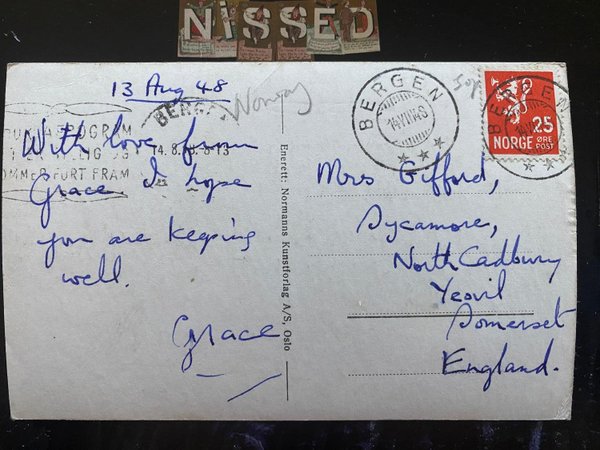 NiSSED
13 Aug 48
BERGEN
Norway
With love from
Grace. I hope
you are keeping
well.
Grace
14.8.48.8-13
OMMER FORT FRAM
Enerett: Normanns Kunstforlag A/S, Oslo
BERGEN
14 VIII 48
BERGEN
25
NORGE ØRE
POST
Mrs Gifford,
Sycamore,
North Cadbury
Yeovil
Somerset
England.